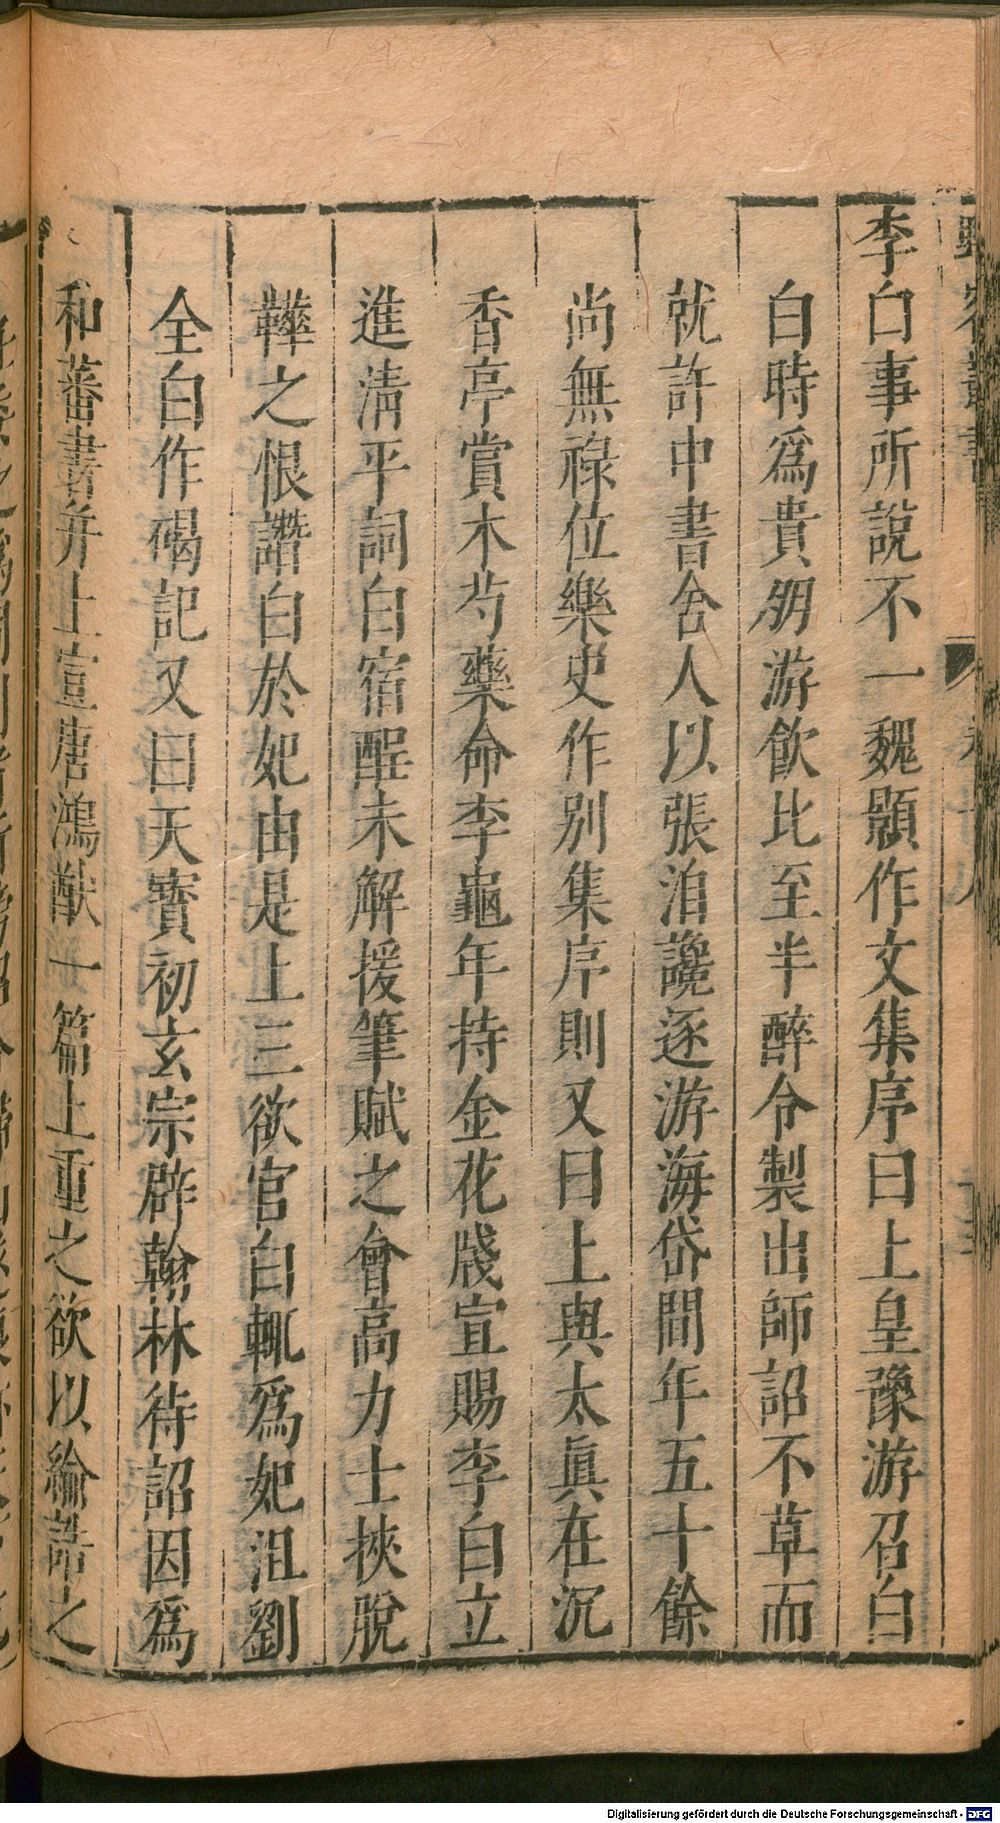 李白事所說不一魏顥作文集序曰上皇豫游召白
白時爲貴朋游飲比至半醉令製出師詔不草而
就許中書舍人以張洎讒逐游海岱間年五十餘
尚無祿位樂史作別集序則又曰上與太眞在沉
香亭賞木芍藥命李龜年持金花牋宣賜李白立
進清平詞白宿酲未解援筆賦之會高力士挾脫
鞾之恨譖白於妃由是上三欲官白輒爲妃沮劉
全白作碣記又曰天寶初玄宗辟翰林待詔因爲
和蕃書并上宣唐鴻猷一篇上重之欲以綸誥之
Digitalisierung gefördert durch die Deutsche Forschungsgemeinschaft - DFG